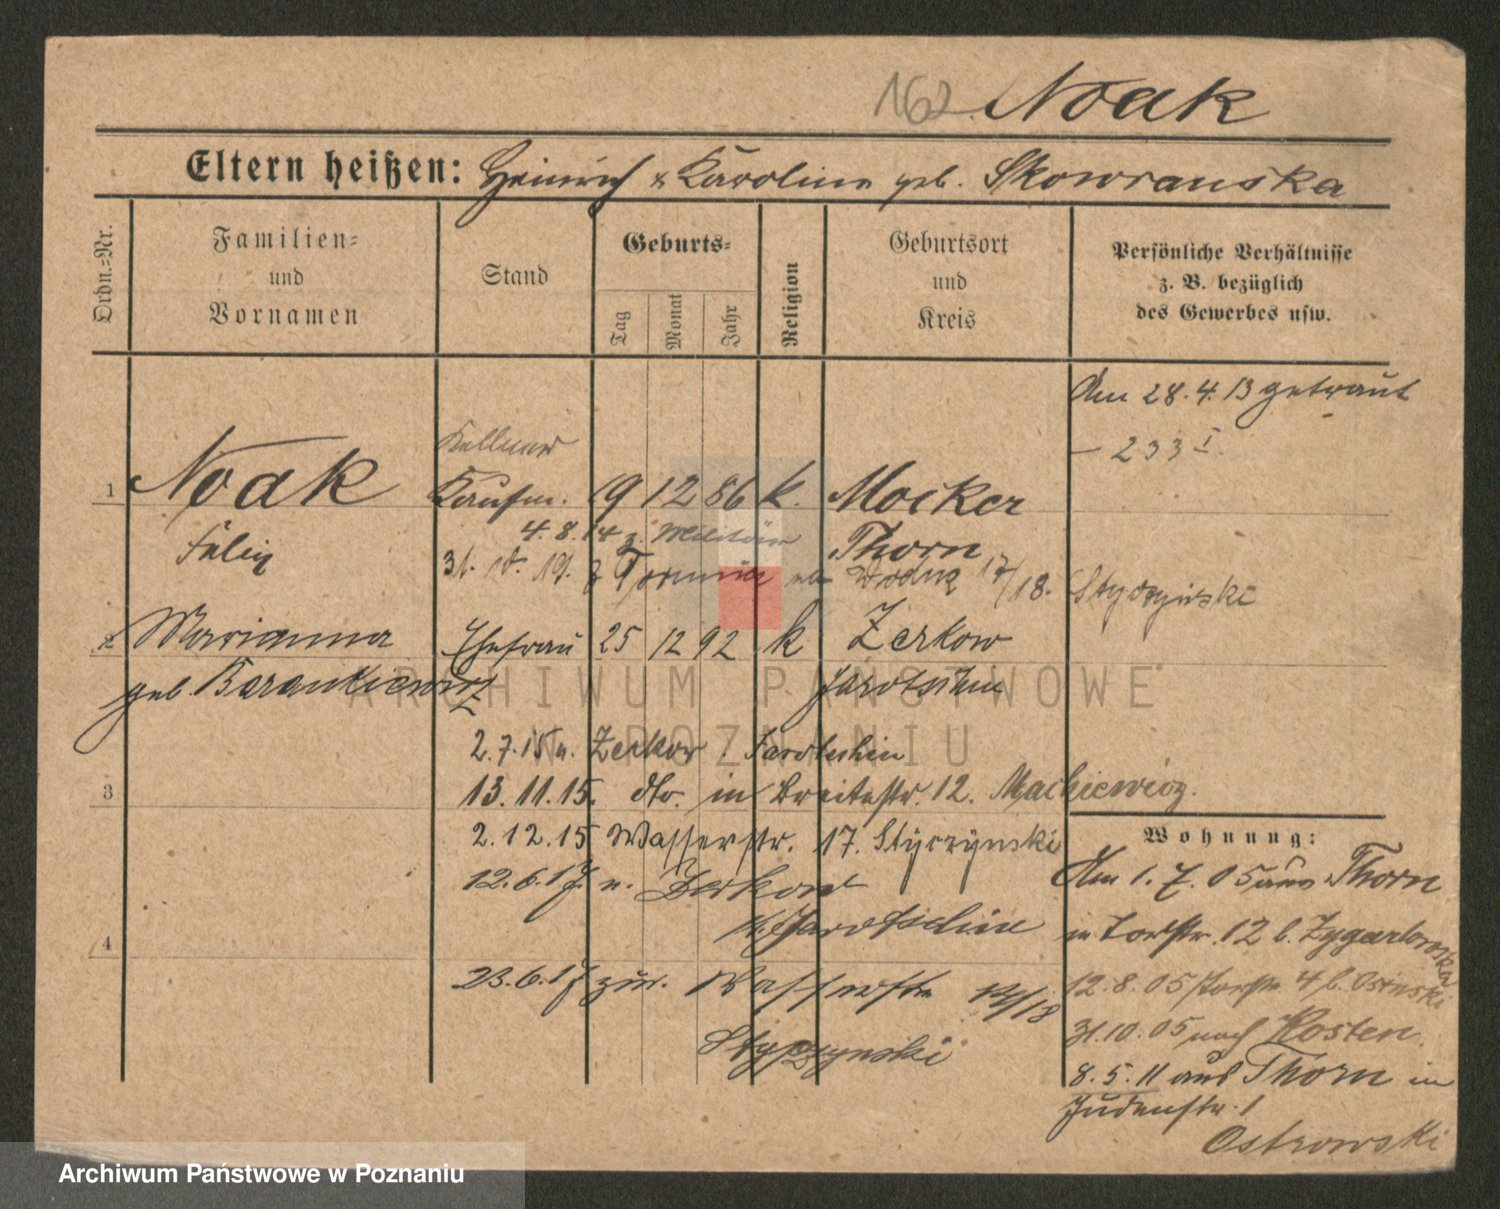 162 Noak
Eltern heißen: Heinrich & Karoline geb. Skowranska
Ordn.=Nr.
Familien=
und
Vornamen
Stand
Geburts=
Tag
Monat
Jahr
Religion
Geburtsort
und
Kreis
Persönliche Verhältnisse
z. B. bezüglich
des Gewerbes usw.
Am 28. 4. 13 getraut
– 233 I.
Kellner
1 Noak Kaufm. 19 12 86 k. Mocker
4. 8. 14 z. Militär Thorn
Felix
31. 19. z 17/18. Styczynski
2 Marianna Ehefrau 25 12 92 k Zerkow
geb. Barankiewicz Jarotschin
2. 7. 15 n. Zerkow Jarotschin
3 13. 11. 15. dto. in Breitestr. 12. Mackiewicz.
2. 12. 15 Wasserstr. 17. Styczynski
12. 6. 17. n. Zerkow
Jarotschin
4
23. 6. 17 zur. Wasserstr 17/18
Styczynski
Wohnung:
Am 1. 7. 05 aus Thorn
in Torstr. 12 b. Zygarlowska
12. 8. 05 Torstr. 4 b. Osinski
31. 10. 05 nach Kosten.
8. 5. 11 aus Thorn in
Judenstr. 1
Ostrowski
ARCHIWUM PAŃSTWOWE
W POZNANIU
Archiwum Państwowe w Poznaniu